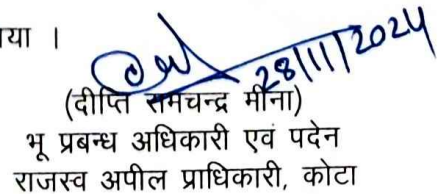 या ।
28/11/2024
(दीप्ति रामचन्द्र मीना)
भू प्रबन्ध अधिकारी एवं पदेन
राजस्व अपील प्राधिकारी, कोटा